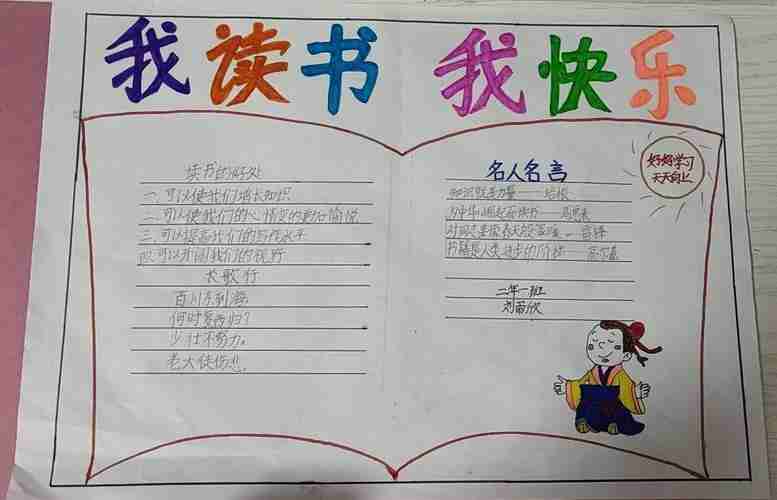 我读书 我快乐
读书的好处
一、可以使我们增长知识
二、可以使我们的心情变的更加愉悦
三、可以提高我们的写作水平
四、可以开阔我们的视野
长歌行
百川东到海,
何时复西归?
少壮不努力。
老大徒伤悲。
名人名言
知识就是力量——培根
为中华崛起而读书——周恩来
书籍是人类进步的阶梯——高尔基
二年一班
刘
欣
好好学习
天天向上